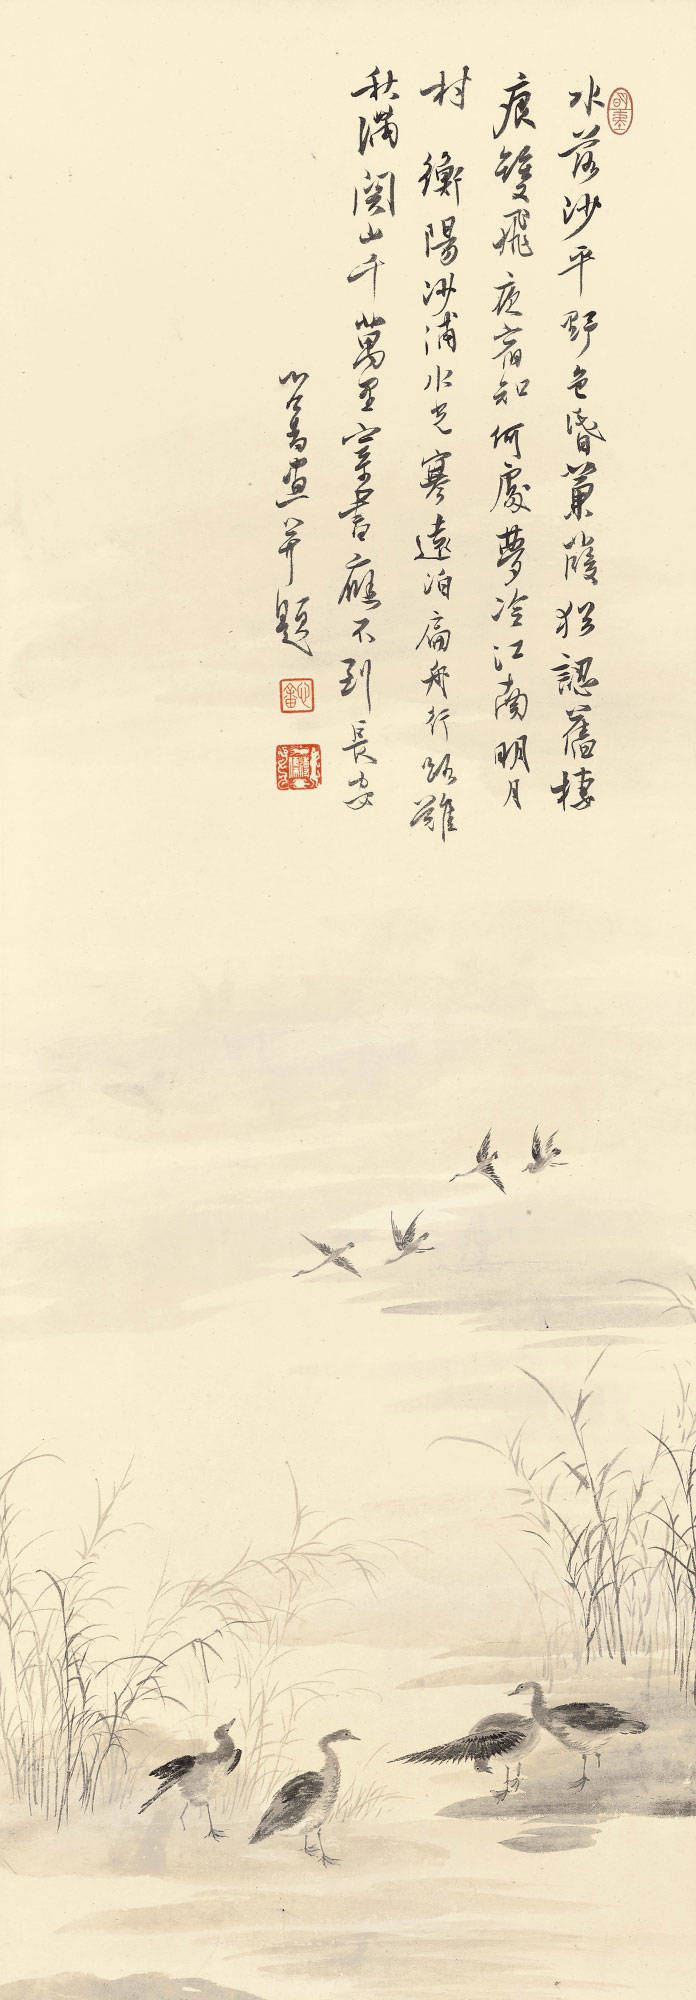 水落沙平野色昏蒹葭猶認舊棲
痕雙飛夜宿知何處夢冷江南明月
村 衡陽沙浦水光寒遠泊扁舟行路難
秋滿關山千萬里家書應不到長安
心畬畫并題
心畬
溥儒